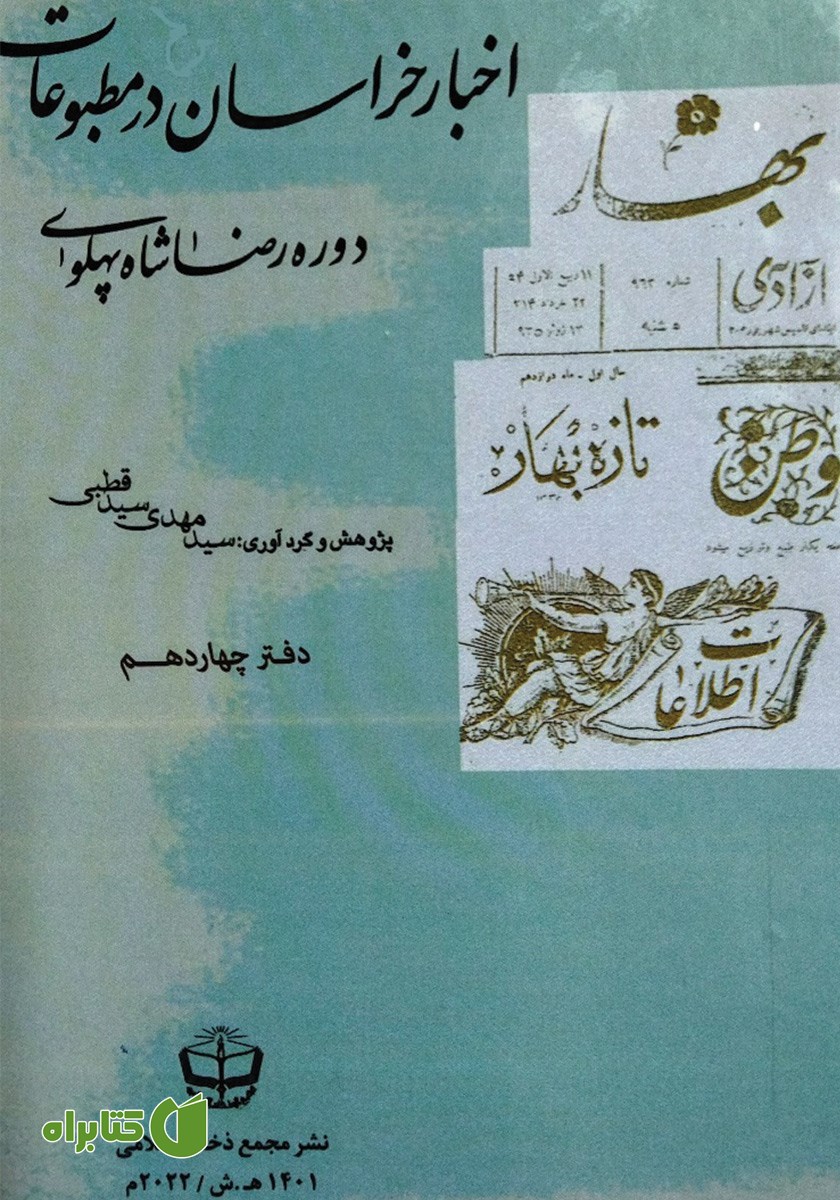 اخبار خراسان در مطبوعات
دوره رضا شاه پهلوی
پژوهش و گردآوری: سید مهدی سیدقطبی
دفتر چهاردهم
بهار
آزادی
شماره ۹۶۲
۵ شنبه
۱۱ ربیع الاول ۵۴
۲۲ خرداد ۳۱۴
۱۳ ژوئن ۹۳۵
سال اول - ماه دوازدهم
تازه بهار
وطن
روزنامه
اطلاعات
نشر مجمع
۱۴۰۱ هـ.ش / ۲۰۲۲م
کتابراه